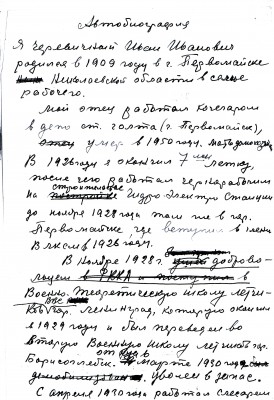 Автобиография
Я Черевичный Иван Иванович
родился в 1909 году в г. Первомайске
Николаевской области в семье
рабочего.
Мой отец работал кочегаром
в депо ст. Голта (г. Первомайск),
умер в 1950 году. Мать домохоз.
В 1926 году я окончил 7 летку,
после чего работал чернорабочим
на строительстве Гидро Электро Станции
до ноября 1928 года там же в гор.
Первомайске где вступил в члены
ВЛКСМ в 1926 году.
В Ноябре 1928 г. доброво-
льцем в РККА и поступил в
Военно-Теоретическую школу летчи-
ков гор. Ленинград, которую окончил
в 1929 году и был переведен во
вторую Военную школу летчиков гор.
Борисоглебск. в Марте 1930 года
уволен в запас.
С апреля 1930 года работал слесарем